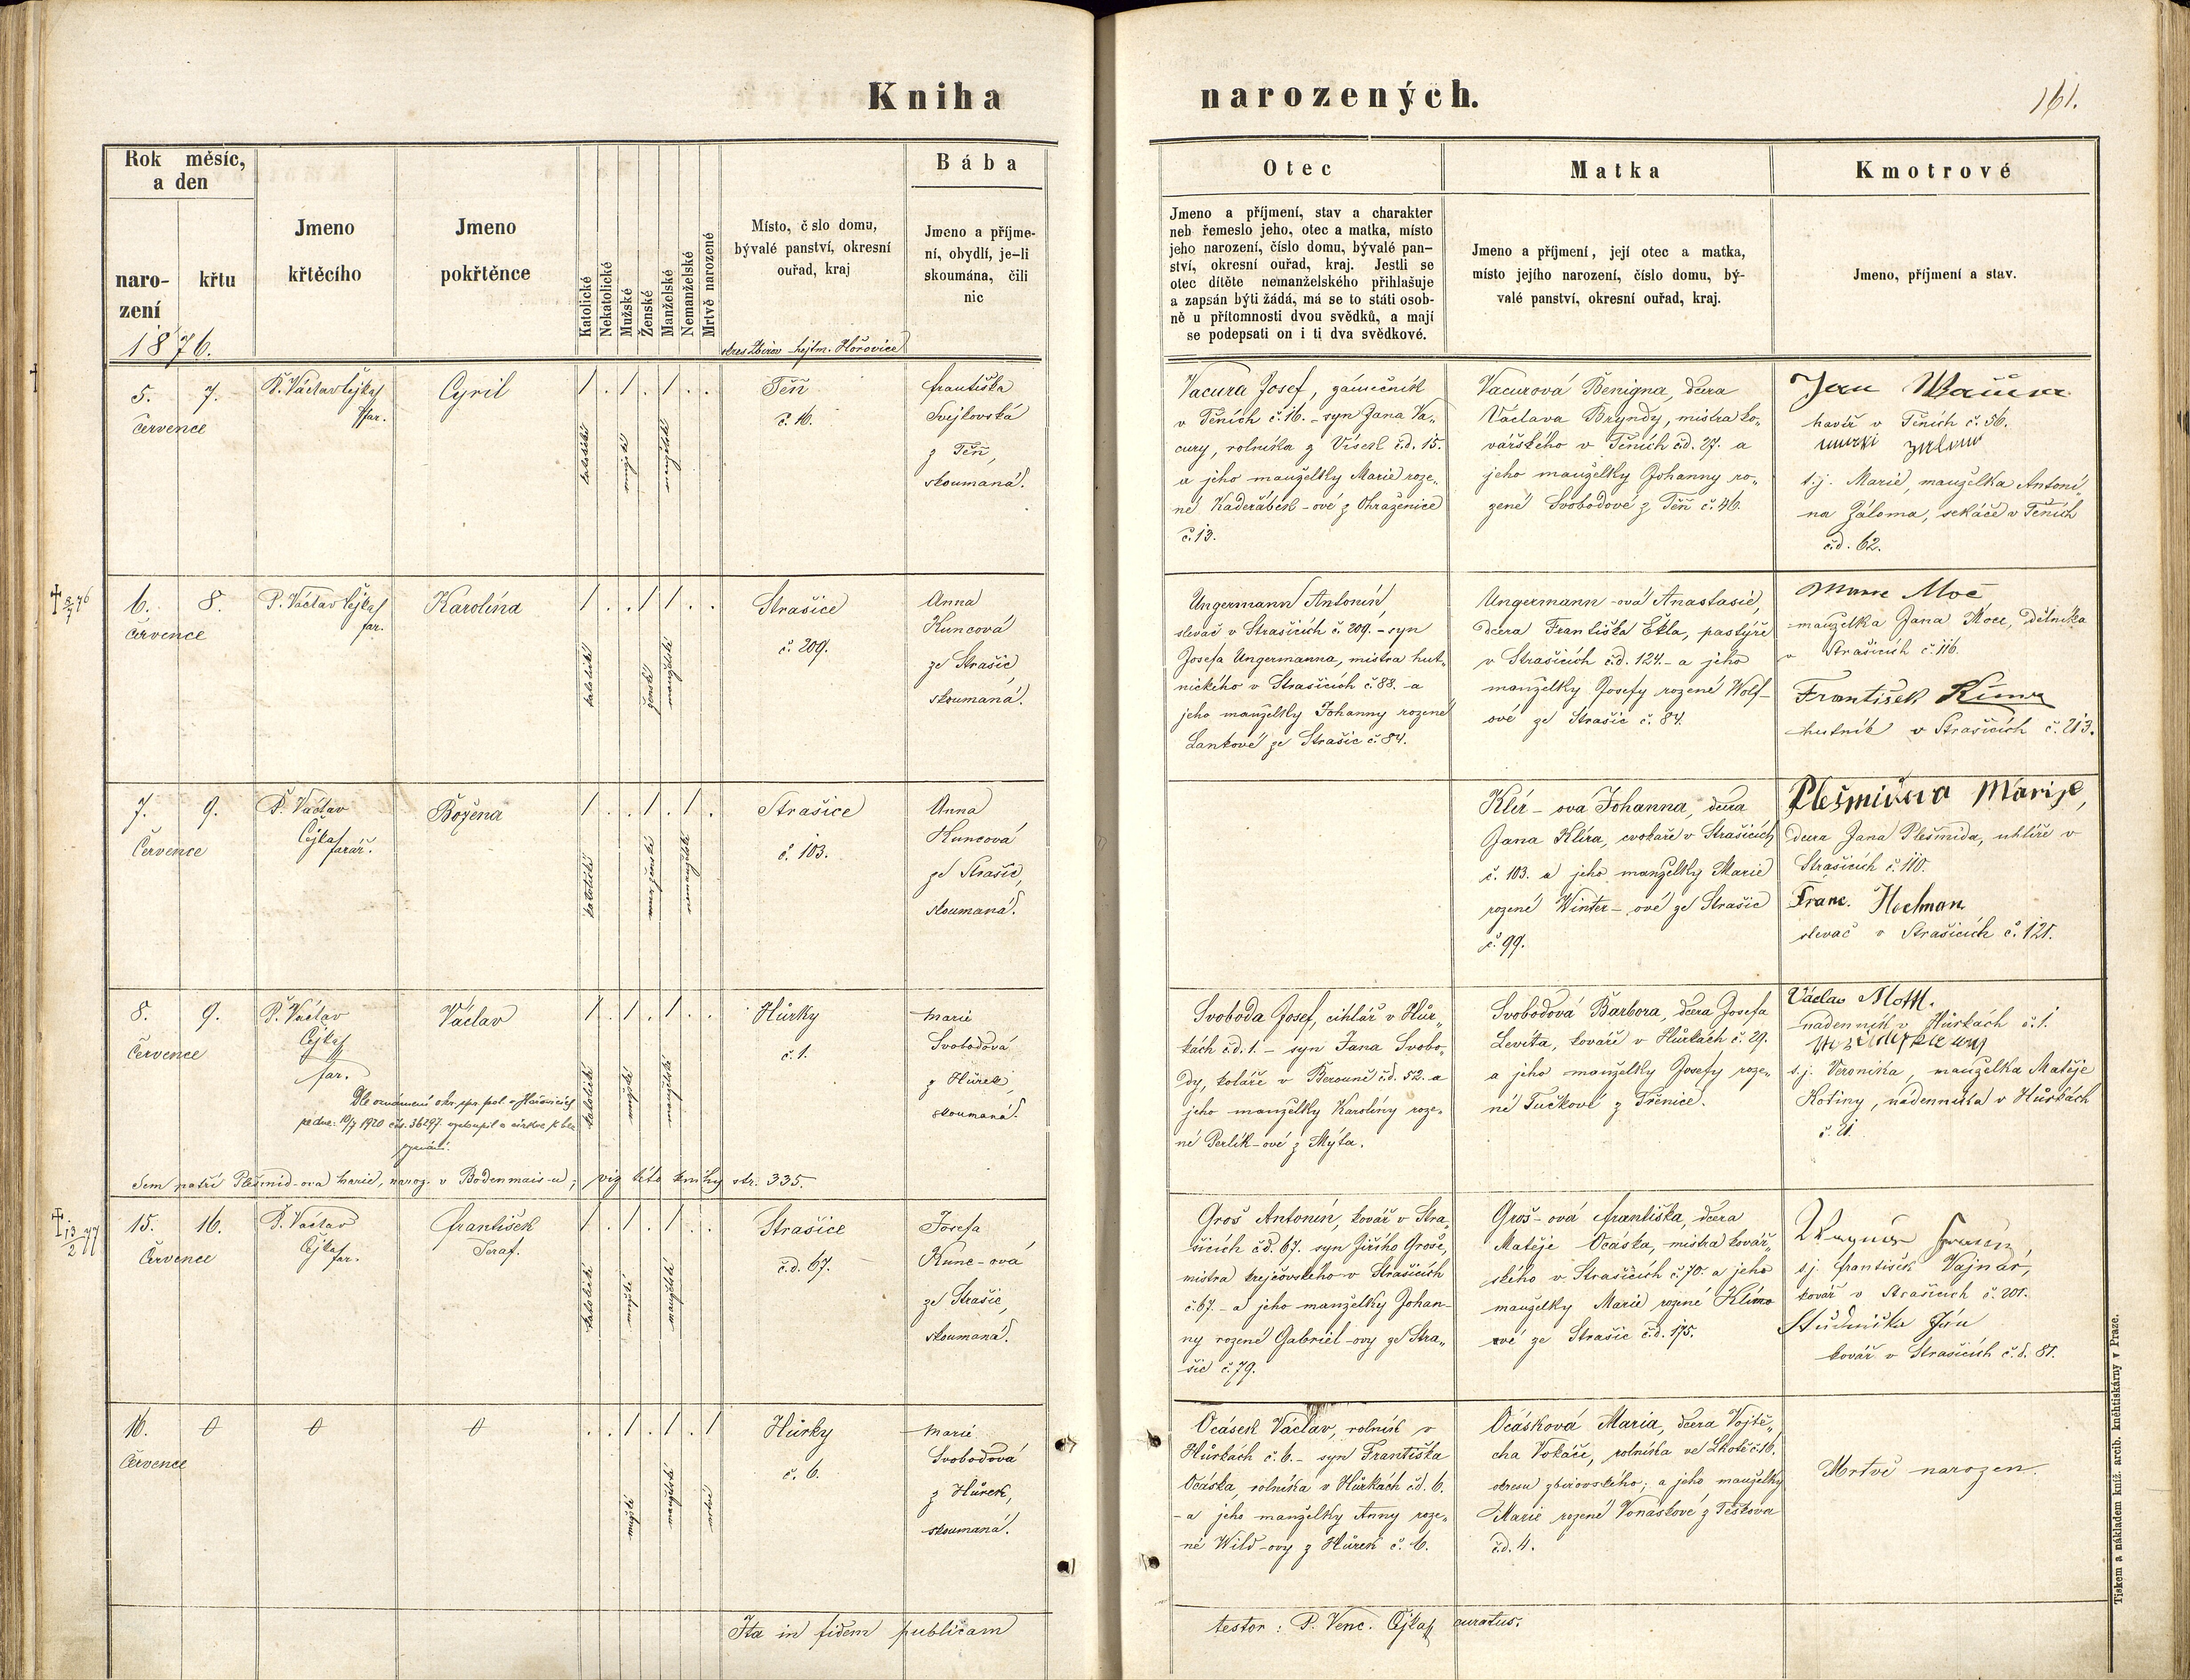 Kniha narozených.
161.
Rok měsíc, a den
narození
křtu
Jmeno křtěcího
Jmeno pokřtěnce
Katolické
Nekatolické
Mužské
Ženské
Manželské
Nemanželské
Mrtvě narozené
Místo, č slo domu,
bývalé panství, okresní
ouřad, kraj
Bába
Jmeno a příjme-
ní, obydlí, je-li
skoumána, čili
nic
Otec
Jmeno a příjmení, stav a charakter
neb řemeslo jeho, otec a matka, místo
jeho narození, číslo domu, bývalé pan-
ství, okresní ouřad, kraj. Jestli se
otec dítěte nemanželského přihlašuje
a zapsán býti žádá, má se to státi osob-
ně u přítomnosti dvou svědků, a mají
se podepsati on i ti dva svědkové.
Matka
Jmeno a příjmení, její otec a matka,
místo jejího narození, číslo domu, bý-
valé panství, okresní ouřad, kraj.
Kmotrové
Jmeno, příjmení a stav.
1876.
okres Zbirov hejtm. Hořovice
5. 7.
Července
P. Václav Čejka
far.
Cyril
1 . 1 . 1 . .
katolické
mužské
manželské
Těň
č. 16.
Františka
Svejkovská
z Těň,
skoumaná.
Vacura Josef, zámečník
v Těních č. 16. - syn Jana Va-
cury, rolníka z Vísek č.d. 15.
a jeho manželky Marie roze-
né Kadeřábek-ové z Ohrazenice
č. 13.
Vacurová Benigna, dcera
Václava Bryndy, mistra ko-
vářského v Těních č.d. 27. a
jeho manželky Johanny ro-
zené Svobodové z Těň č. 46.
Jan
havíř v Těních č. 56.
s.j. Marie, manželka Antoní-
na Záloma, sekáče v Těních
č.d. 62.
6. 8.
Července
P. Václav Čejka
far.
Karolína
1 . . 1 1 . .
katolické
ženské
manželské
Strašice
č. 209.
Anna
Kuncová
ze Strašic,
skoumaná.
Ungermann Antonín,
slevač v Strašicích č. 209. - syn
Josefa Ungermanna, mistra hut-
nického v Strašicích č. 88. - a
jeho manželky Johanny rozené
Lankové ze Strašic č. 84.
Ungermann-ová Anastasie,
dcera Františka Ekla, pastýře
v Strašicích č.d. 124. - a jeho
manželky Josefy rozené Wolf-
ové ze Strašic č. 84.
Marie Moc
manželka Jana Moce, dělníka
v Strašicích č. 116.
František
hutník v Strašicích č. 213.
7. 9.
Července
P. Václav
Čejka
farář.
Božena
1 . . 1 . 1 .
katolické
ženské
nemanželské
Strašice
č. 103.
Anna
Kuncová
ze Strašic,
skoumaná.
Klír-ová Johanna, dcera
Jana Klíra, cvokaře v Strašicích
č. 103. a jeho manželky Marie
rozené Winter-ové ze Strašic
č. 99.
Plešmidova Marije,
dcera Jana Plešmida, uhlíře v
Strašicích č. 110.
Franc. Hochman
slevač v Strašicích č. 121.
8. 9.
Července
P. Václav
Čejka
far.
Václav
1 . 1 . 1 . .
katolické
mužské
manželské
Hůrky
č. 1.
Marie
Svobodová
z Hůrek,
skoumaná.
Dle oznámení okr. spr. pol. v Hořovicích
ze dne: 10/7 1920 čís. 36297. vystoupil z církve k bez
vyznání.
Svoboda Josef, cihlář v Hůr-
kách č.d. 1. - syn Jana Svobo-
dy, koláře v Berouně č.d. 52. a
jeho manželky Karolíny roze-
né Perlík-ové z Mýta.
Svobodová Barbora, dcera Josefa
Levíta, kováře v Hůrkách č. 29.
a jeho manželky Josefy roze-
né Tučkové z Třenice.
Václav Mottl.
nádenník v Hůrkách č. 1.
s.j. Veronika, manželka Matěje
Kotiny, nádenníka v Hůrkách
č. 21.
Sem patří Plešmid-ova Marie, naroz. v Bodenmais-u; viz této knihy str. 335.
15. 16.
Července
P. Václav
Čejka
far.
František
Seraf.
1 . 1 . 1 . .
katolické
mužské
manželské
Strašice
č.d. 67.
Josefa
Kunc-ová
ze Strašic,
skoumaná.
Groš Antonín, kovář v Stra-
šicích č.d. 67. syn Jiřího Groše,
mistra krejčovského v Strašicích
č. 67. - a jeho manželky Johan-
ny rozené Gabriel-ovy ze Stra-
šic č. 79.
Groš-ová Františka, dcera
Matěje Ocáska, mistra kovář-
ského v Strašicích č. 70. a jeho
manželky Marie rozené Klímo
vé ze Strašic č.d. 175.
s.j. František Vajnár,
kovář v Strašicích č. 201.
Studnička Ján
kovář v Strašicích č.d. 81.
16. 0 0 0
Července
. . 1 . 1 . 1
mužské
manželské
mrtvé
Hůrky
č. 6.
Marie
Svobodová
z Hůrek,
skoumaná.
Ocásek Václav, rolník v
Hůrkách č. 6. - syn Františka
Ocáska, rolníka v Hůrkách č.d. 6.
- a jeho manželky Anny roze-
né Wild-ovy z Hůrek č. 6.
Ocásková Maria, dcera Vojtě-
cha Vokáče, rolníka ve Lhotě č. 16.
okresu zbirovského; a jeho manželky
Marie rozené Vonáskové z Těškova
č.d. 4.
Mrtvě narozen.
Ita in fidem publicam testor: P. Venc. Čejka curatus.
Tiskem a nákladem kníž. arcib. knihtiskárny v Praze.